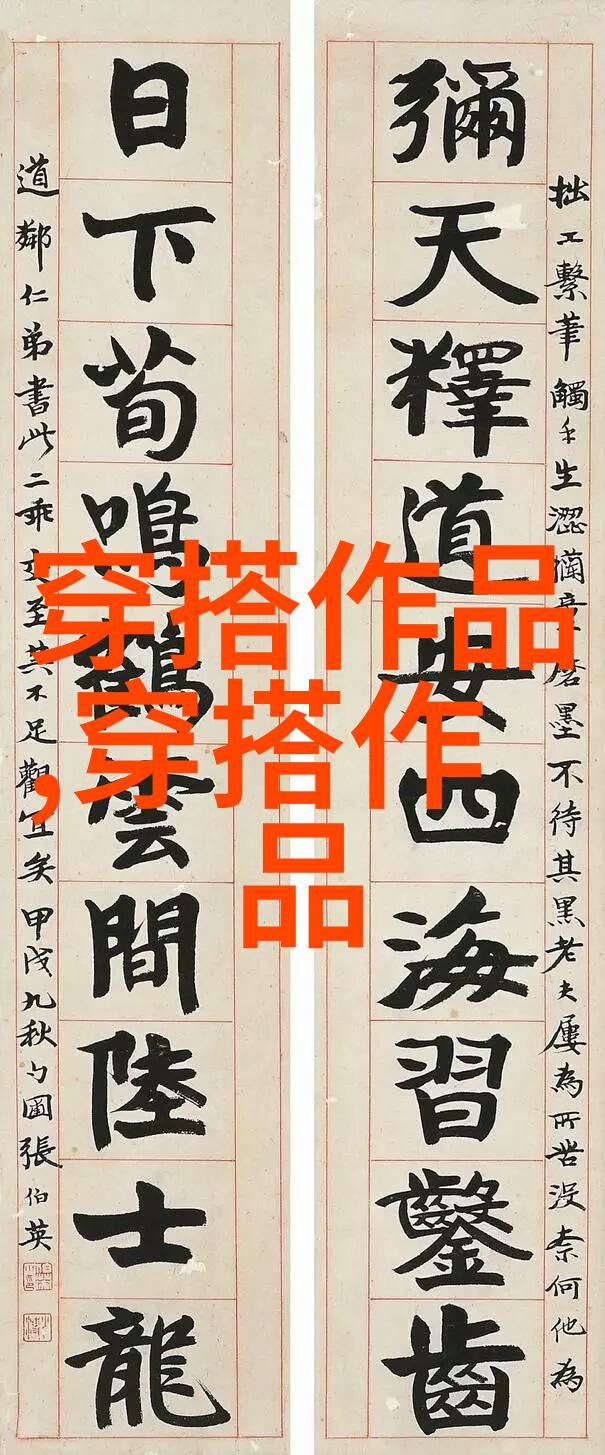 拙工繫筆觸手生澀懶童磨墨不待其黑老夫屢為所苦沒奈何他為
彌天釋道安四海習鑿齒
日下荀鳴鶴雲間陸士龍
道鄰仁弟書此二乖交至其不足觀宜矣甲戌九秋勺圃張伯英
穿搭作品
,穿搭作
品